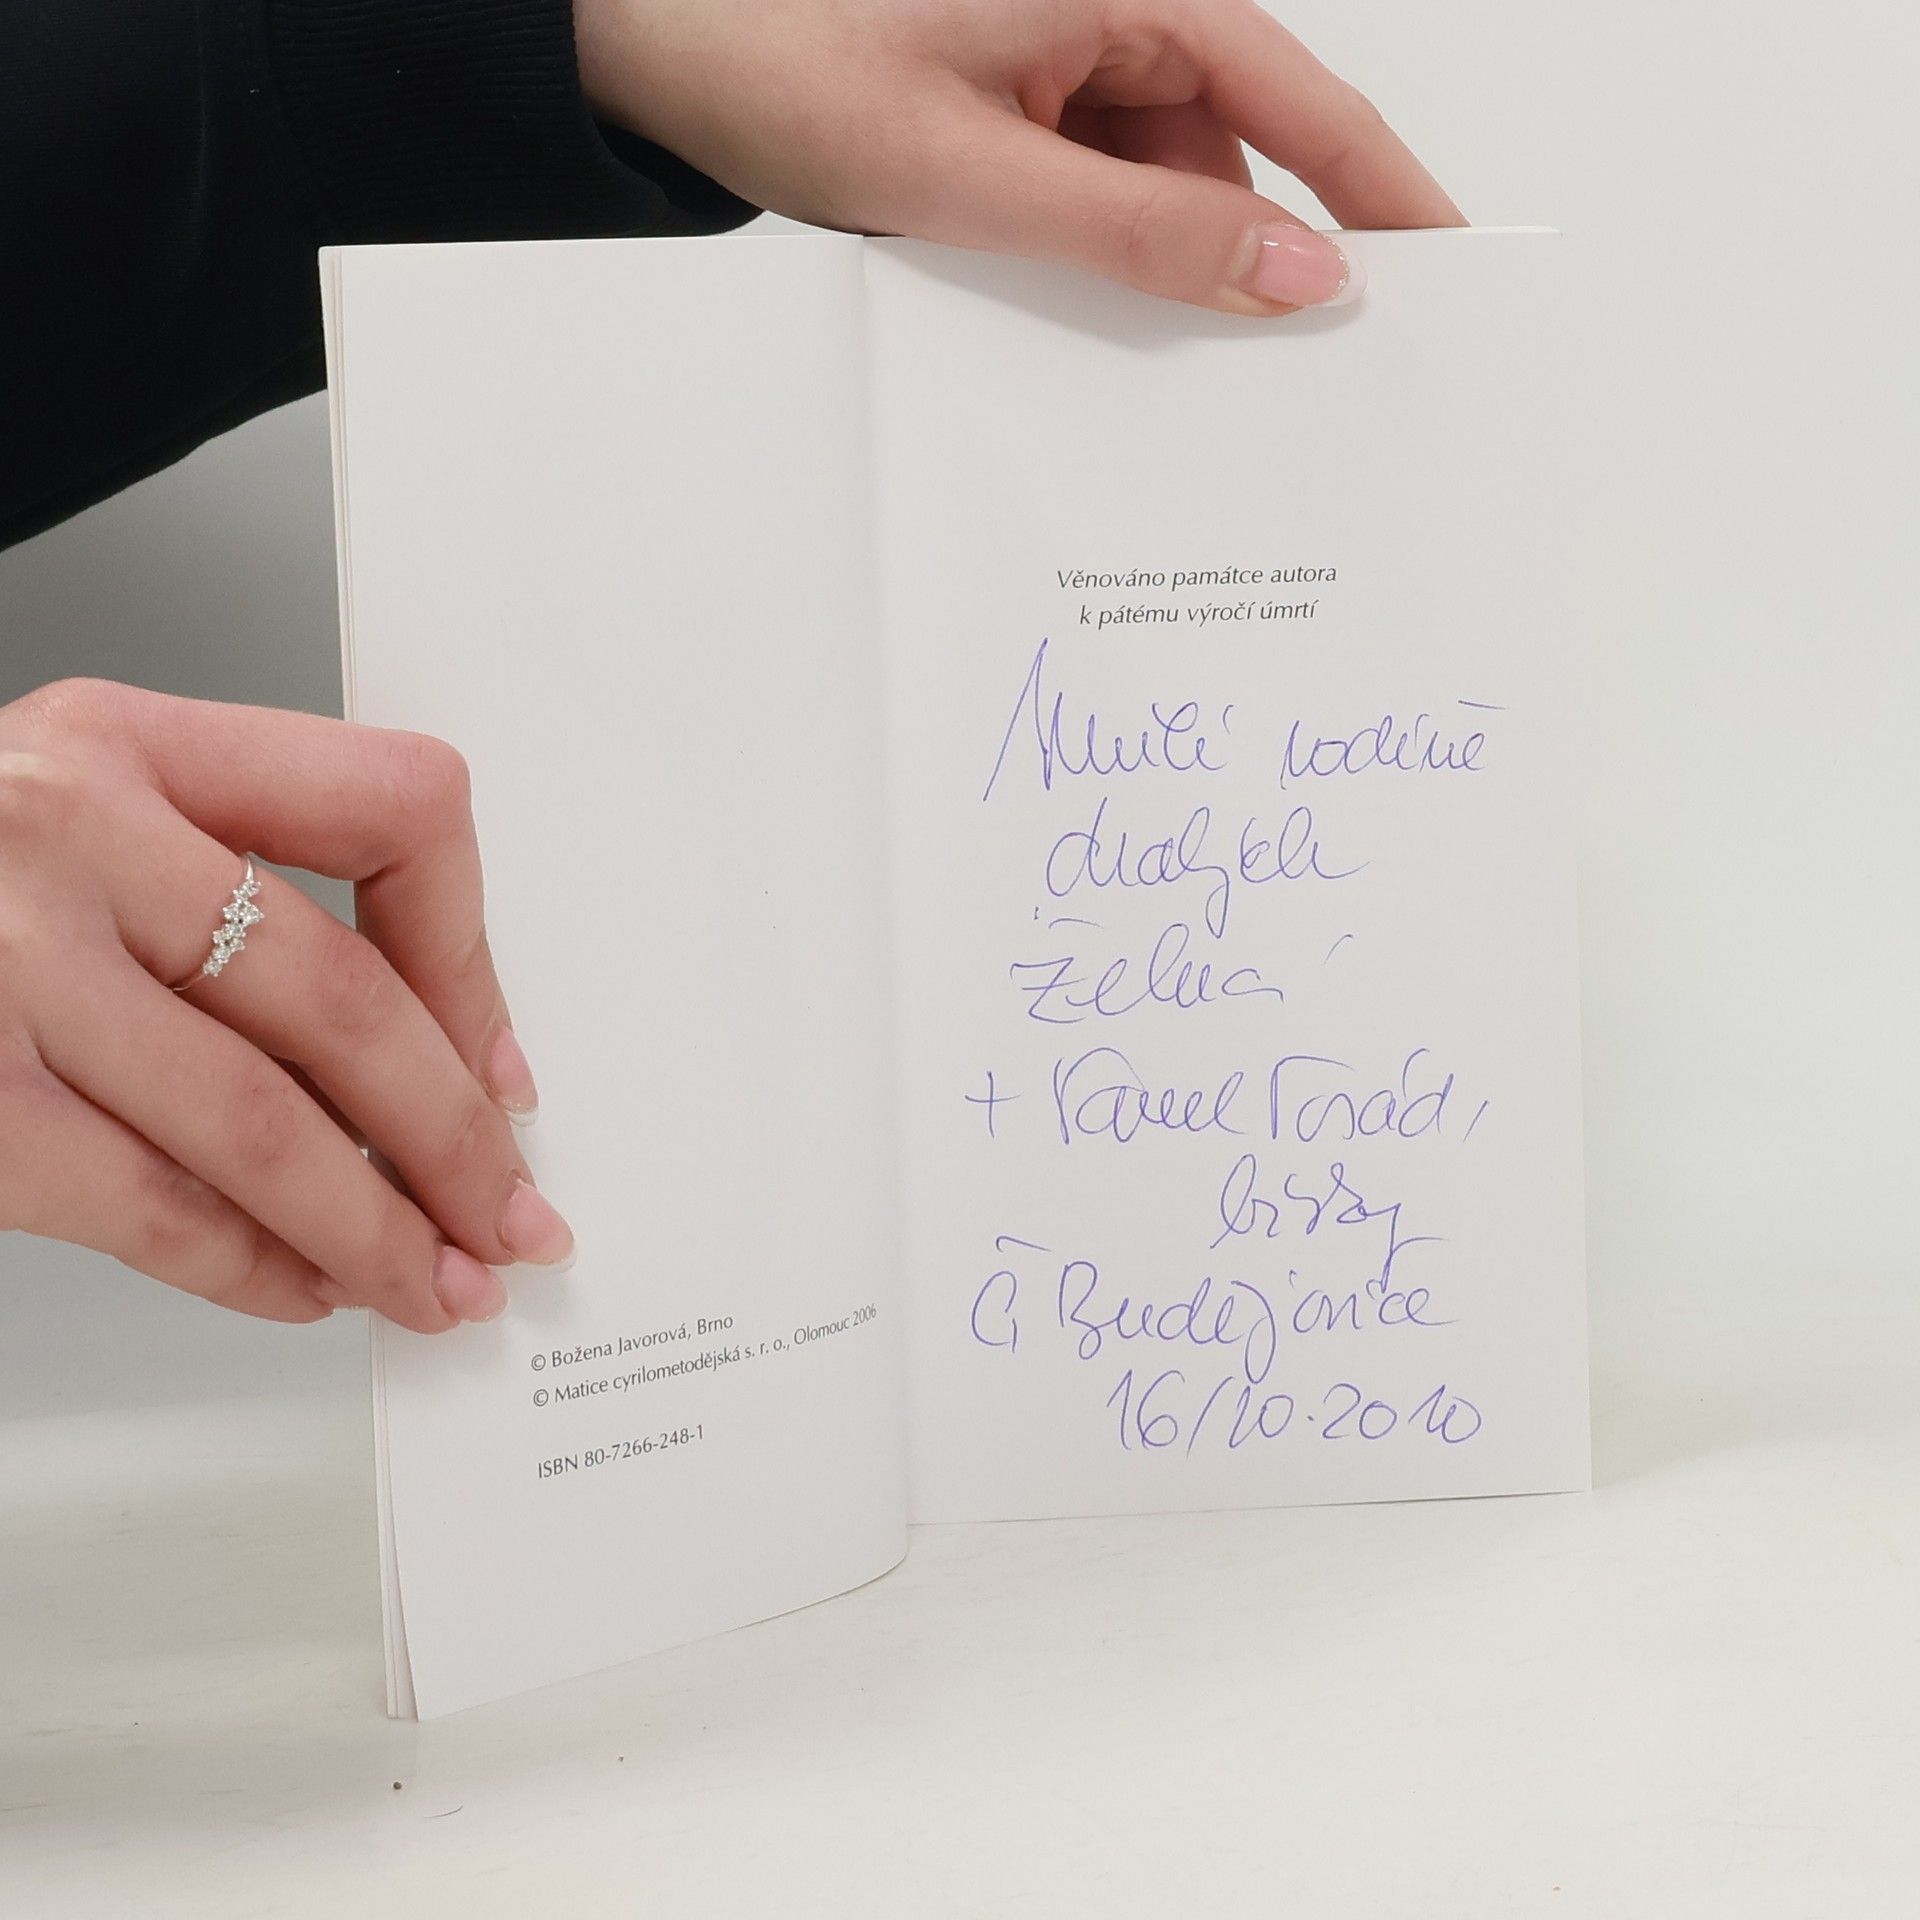 © Božena Javorová, Brno
© Matice cyrilometodějská s. r. o., Olomouc 2006
ISBN 80-7266-248-1
Věnováno památce autora
k pátému výročí úmrtí
Milé rodině
drahých
Želná
+ Pavel Posád,
bisk
Č Budějovice
16/10.2010